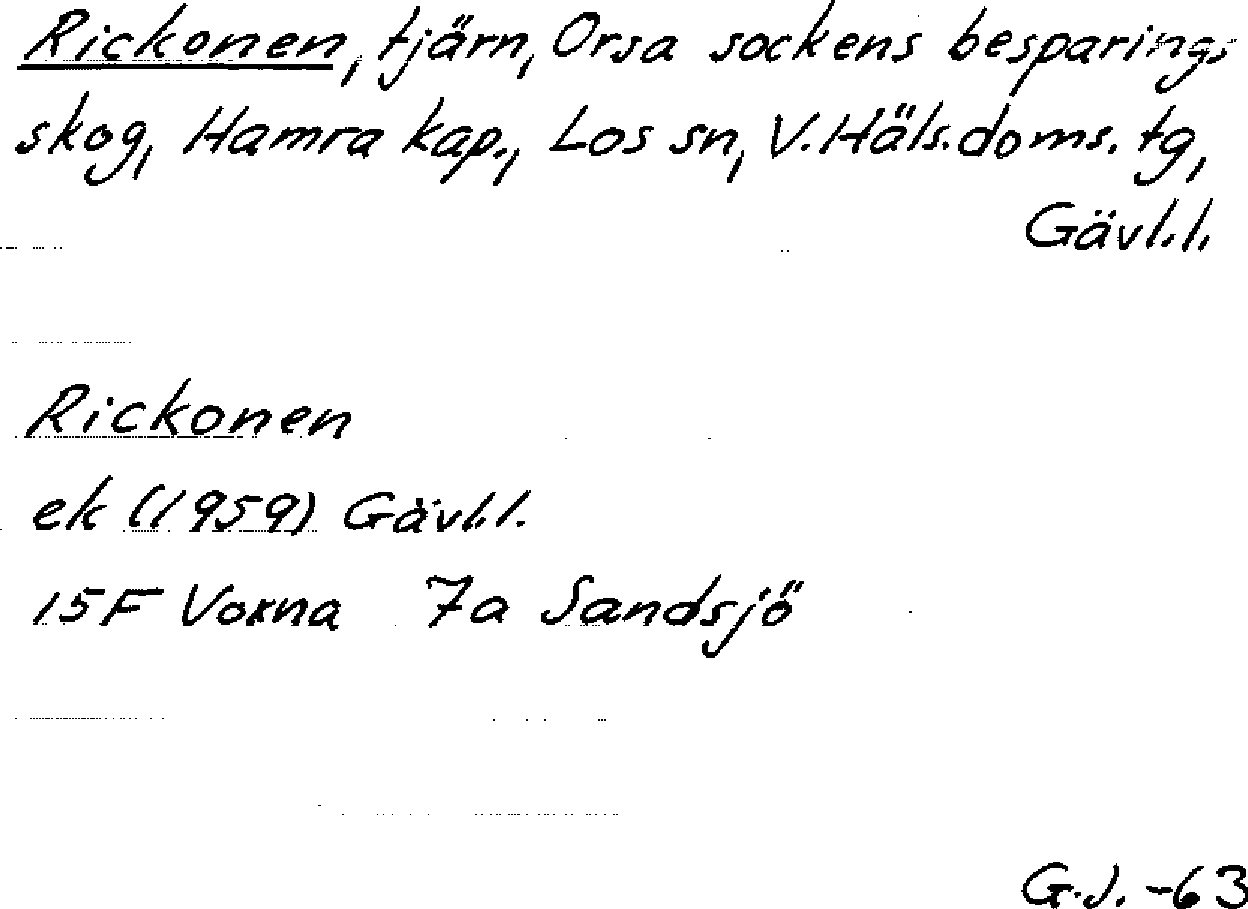 Rickonen, tjärn, Orsa sockens besparings
skog, Hamra kap., Los sn, V. Häls. doms. tg,
Gävl.l.
Rickonen
ek (1959) Gävl.l.
15F Voxna 7a Sandsjö
G.J. -63